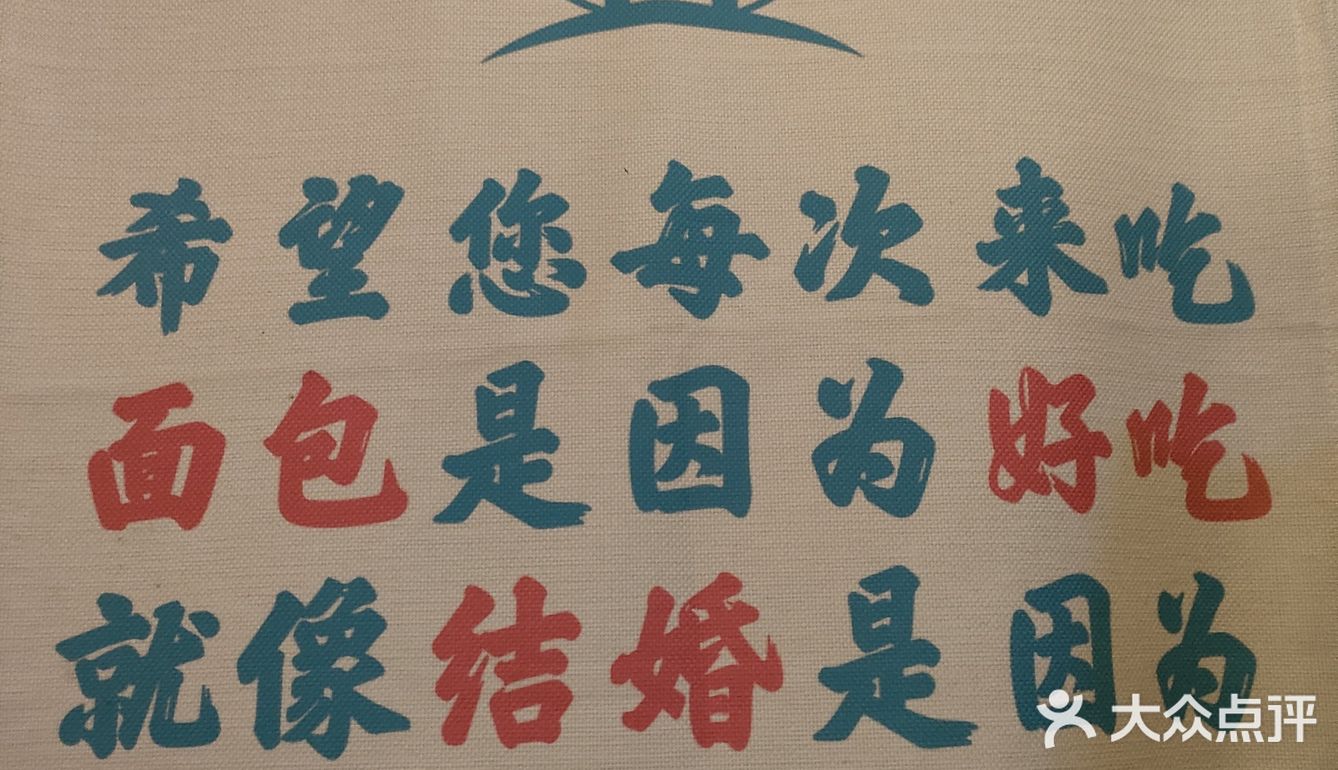 希望您每次来吃
面包是因为好吃
就像结婚是因为
大众点评